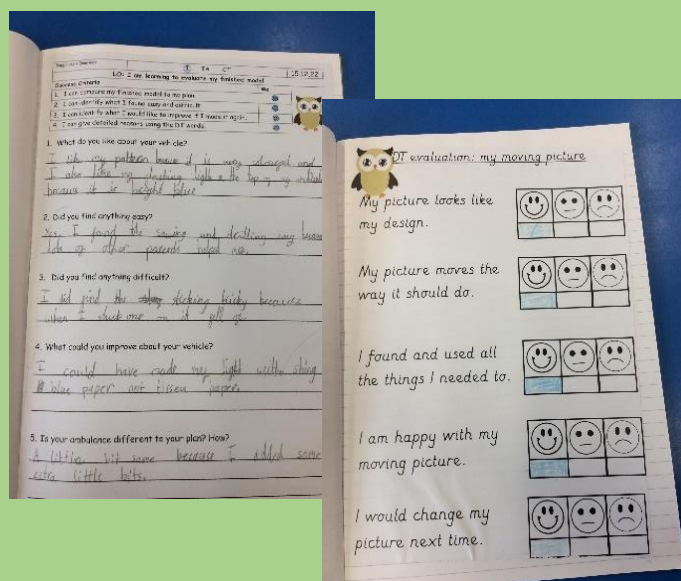 15.12.22
LO: I am learning to evaluate my finished model
Success Criteria
1. I can compare my finished model to my plan.
2. I can identify what I found easy and difficult
3. I can identify what I would like to improve if I made it again.
4. I can give detailed reasons using the DT words.
1. What do you like about your vehicle?
I like my pattern it is very and
I also like my flashing light on the top of my
because it is bright blue
2. Did you find anything easy?
Yes, I found the sawing and drilling easy
lots of other parents helped me.
3. Did you find anything difficult?
I did find the sticking tricky because
when I stuck one on it fell of.
4. What could you improve about your vehicle?
I could have made my light with shiny
blue paper not paper.
5. Is your ambulance different to your plan? How?
A little bit because I added some
extra little bits.
DT evaluation: my moving picture
My picture looks like
my design.
My picture moves the
way it should do.
I found and used all
the things I needed to.
I am happy with my
moving picture.
I would change my
picture next time.